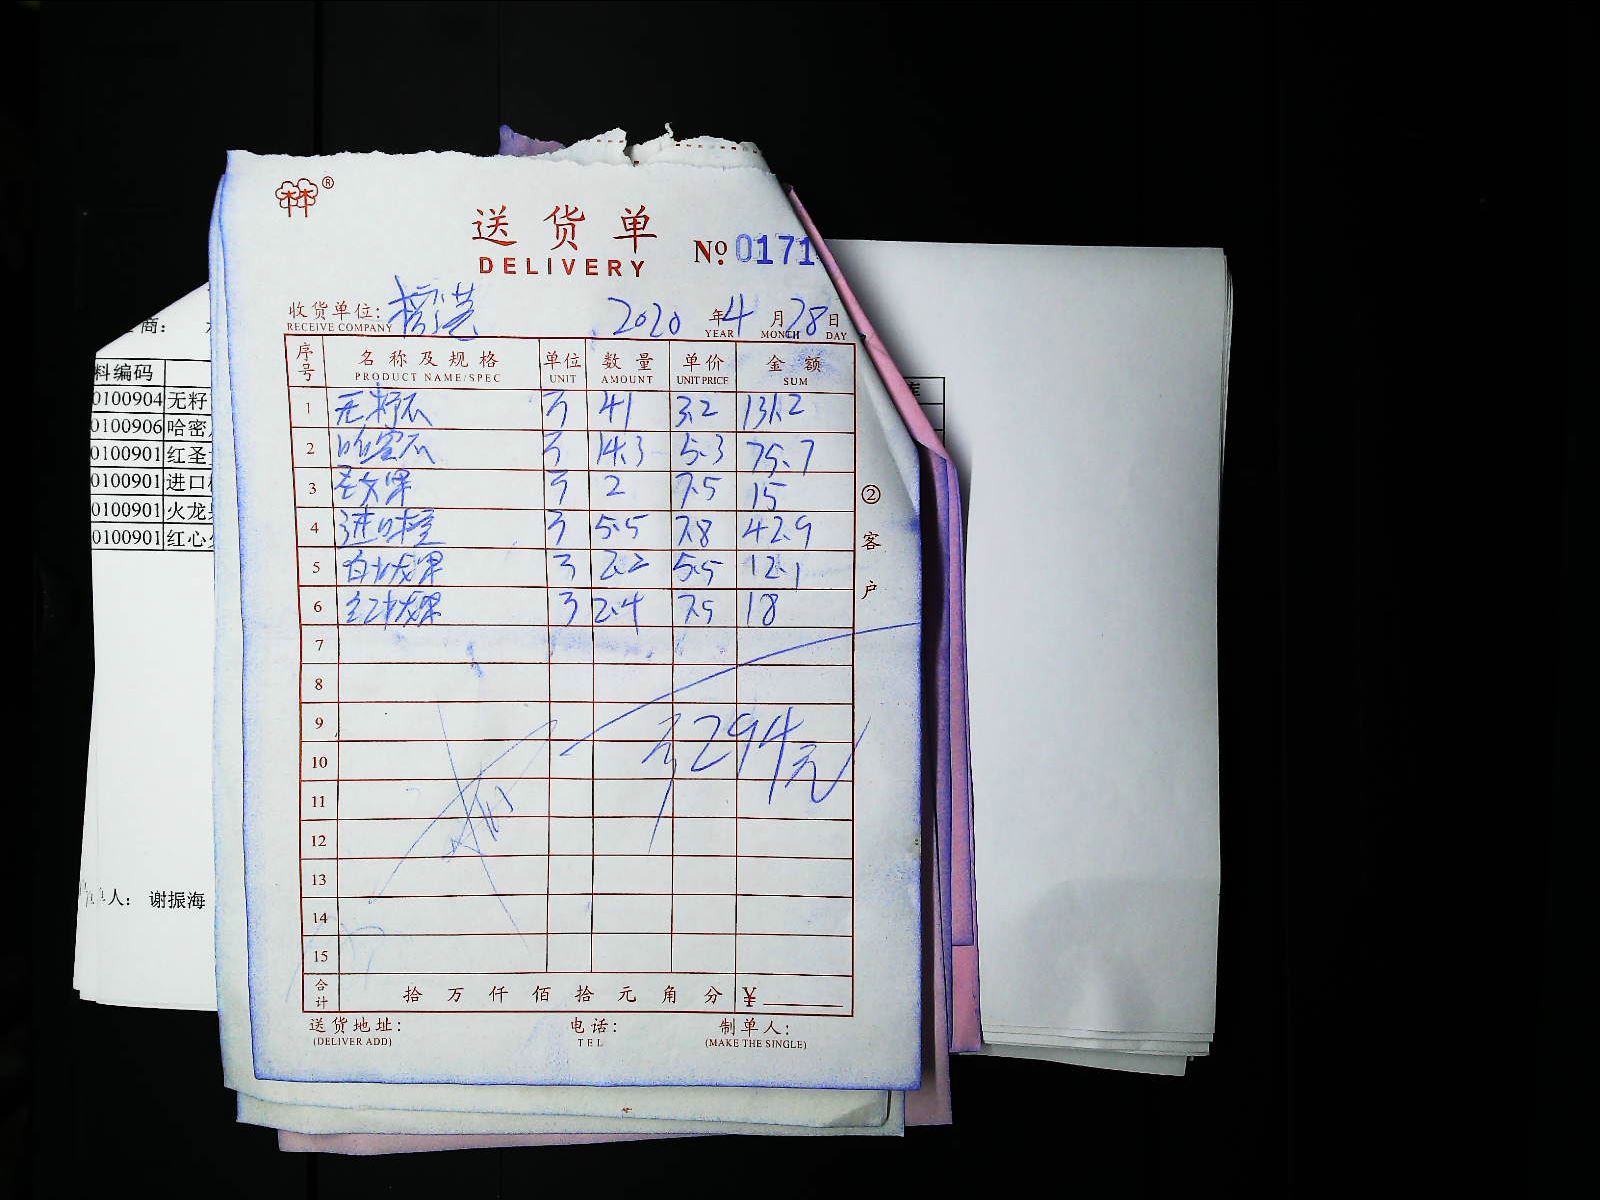 ®
送货单
DELIVERY
№ 0171
收货单位:
RECEIVE COMPANY
2020 年 4 月 28 日
YEAR MONTH DAY
序号 名称及规格 单位 数量 单价 金额
PRODUCT NAME/SPEC UNIT AMOUNT UNIT PRICE SUM
1 无籽瓜 41 3.2 131.2
2 哈密瓜 14.3 5.3 75.7
3 圣女果 2 7.5 15
4 进口橙 5.5 7.8 42.9
5 白火龙果 2.2 5.5 12.1
6 红火龙果 2.4 7.5 18
7
8
9
294元
10
11
12
13
14
15
合计 拾 万 仟 佰 拾 元 角 分 ¥
送货地址: 电话: 制单人:
(DELIVER ADD) TEL (MAKE THE SINGLE)
②客户
商:
料编码
0100904 无籽
0100906 哈密
0100901 红圣
0100901 进口
0100901 火龙
0100901 红心
单人: 谢振海